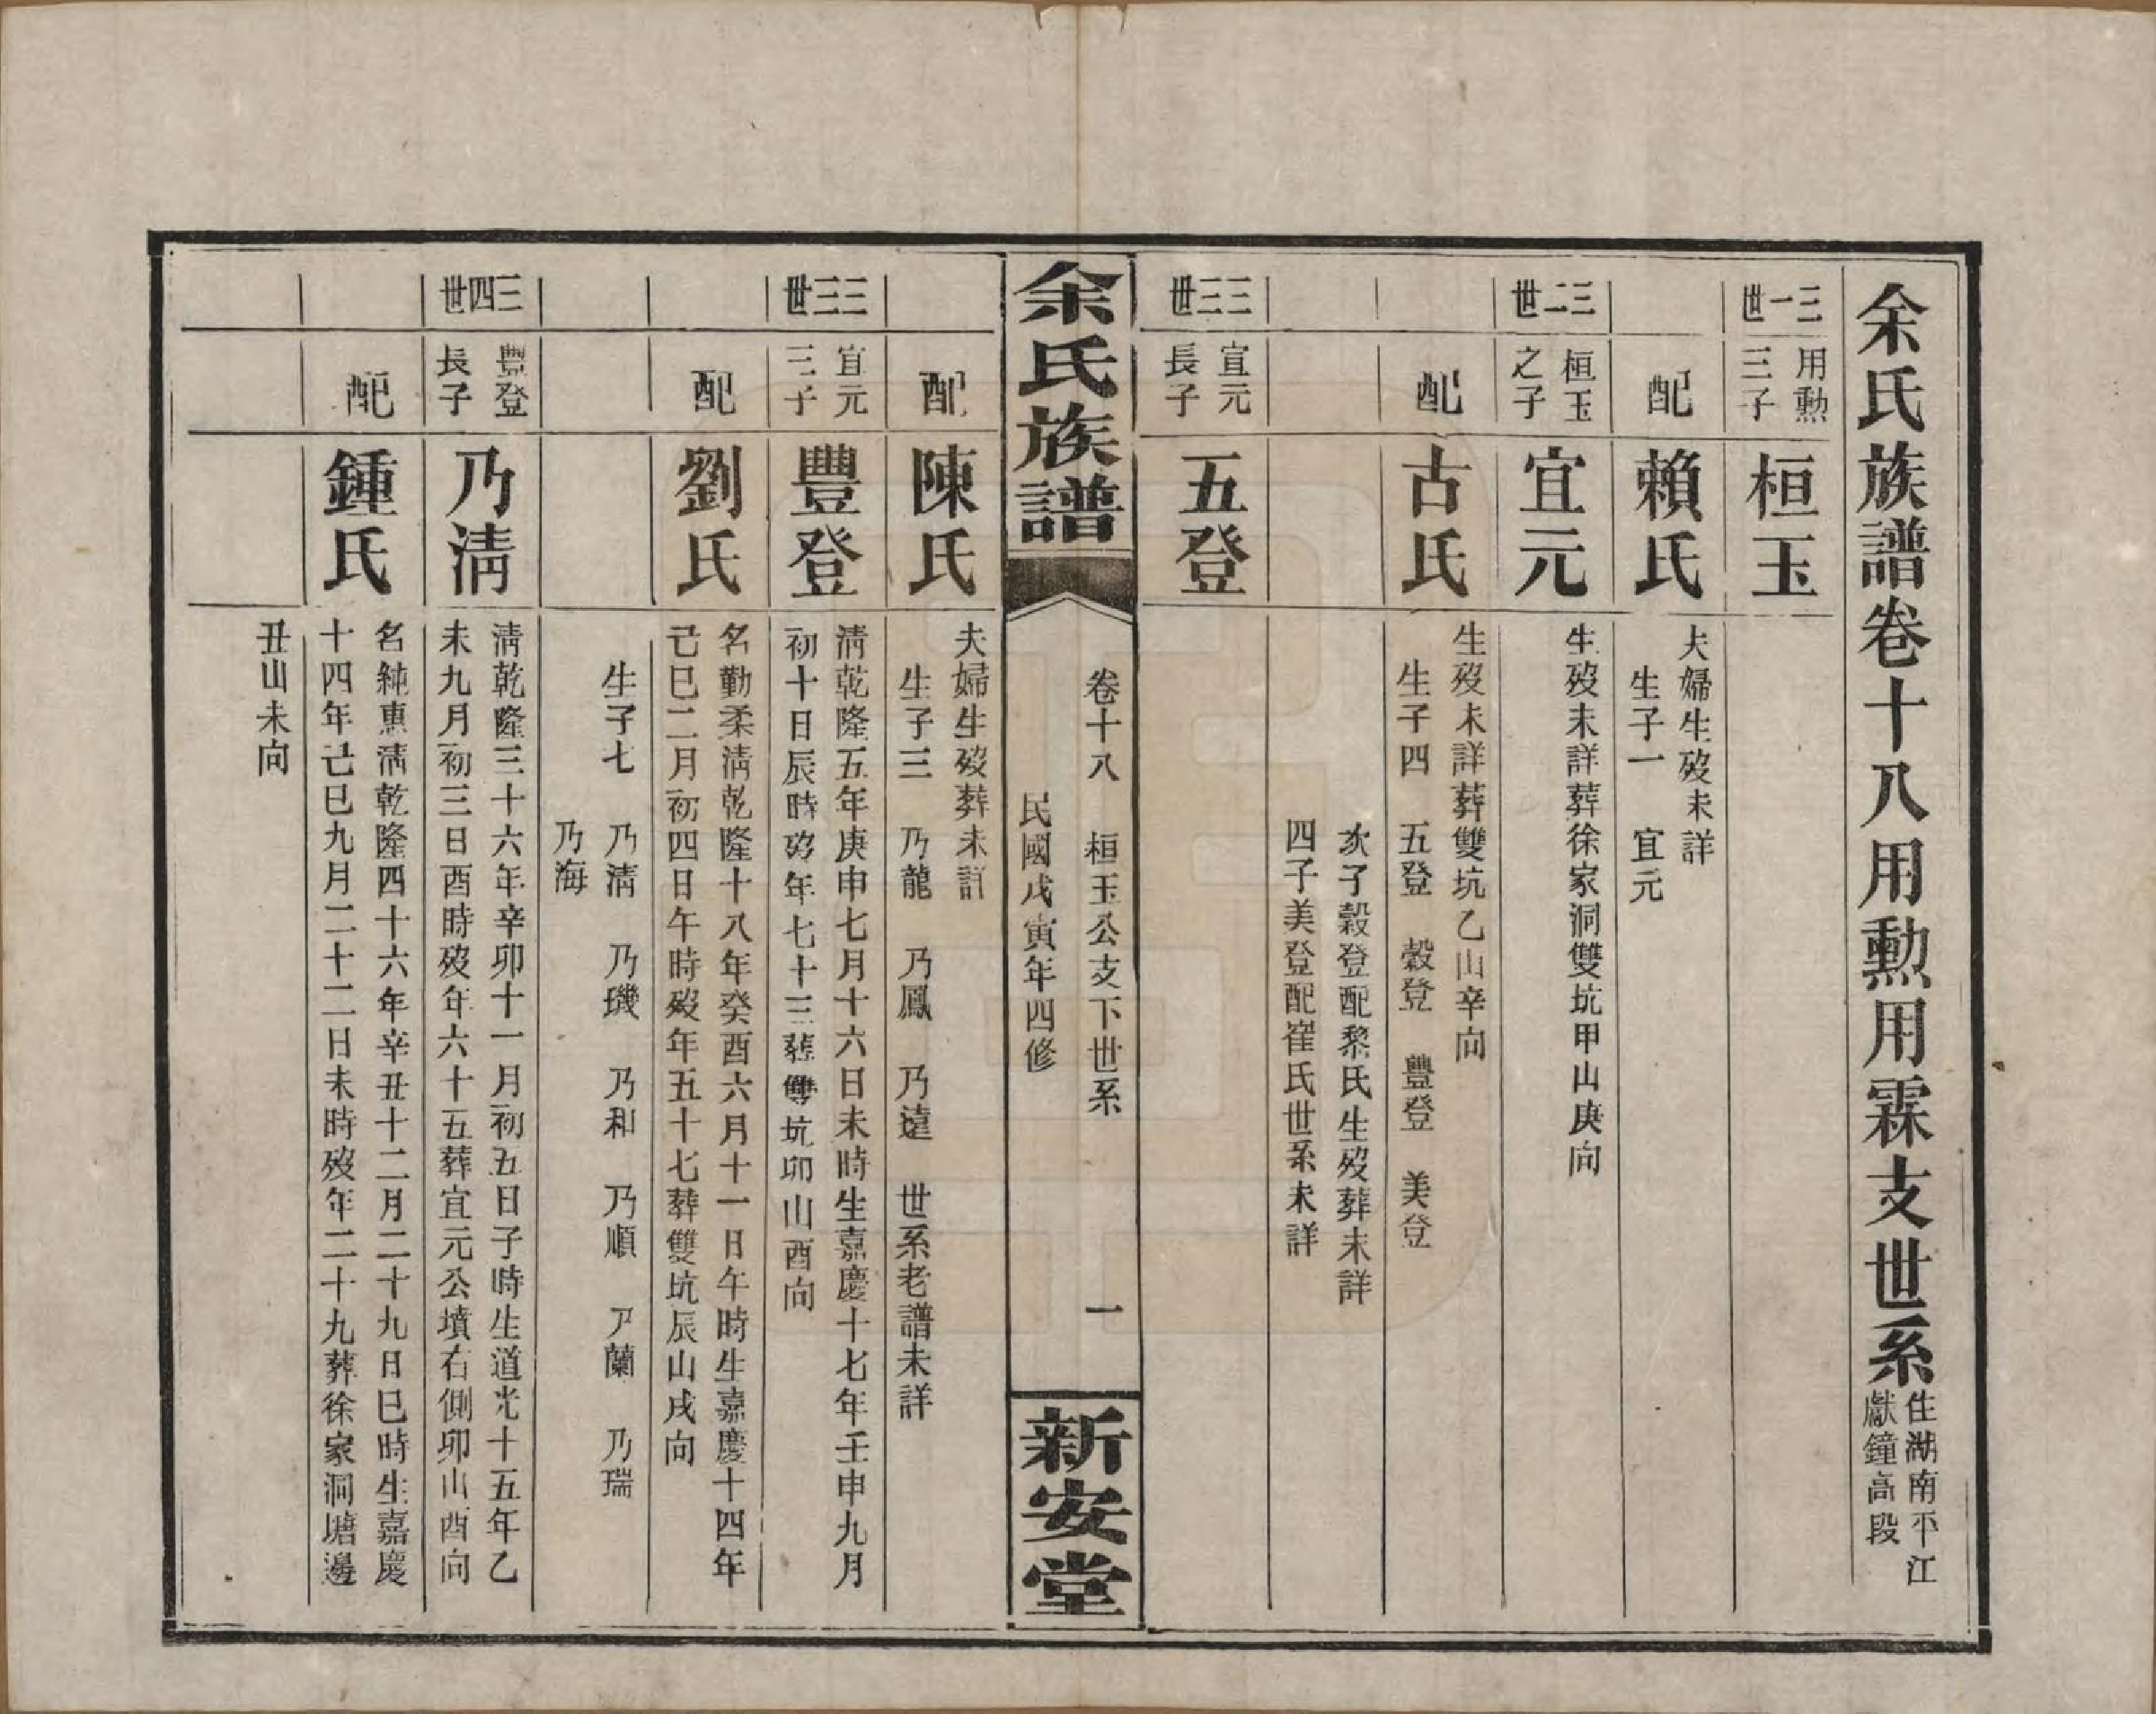 余氏族譜卷十八用勲用霖支世系
住湖南平江
獻鐘高段
三一世
用勲
三子
桓玉
配
賴氏
夫婦生歿未詳
生子一 宜元
三二世
桓玉
之子
宜元
生歿未詳葬徐家洞雙坑甲山庚向
配
古氏
生歿未詳葬雙坑乙山辛向
生子四 五登 穀登 豐登 美登
次子穀登配黎氏生歿葬未詳
四子美登配崔氏世系未詳
三三世
宜元
長子
五登
余氏族譜
卷十八 桓玉公支下世系 一
民國戊寅年四修
新安堂
配
陳氏
夫婦生歿葬未詳
生子三 乃龍 乃鳳 乃遠 世系老譜未詳
三三世
宜元
三子
豐登
淸乾隆五年庚申七月十六日未時生嘉慶十七年壬申九月
初十日辰時歿年七十三葬雙坑卯山酉向
配
劉氏
名勤柔淸乾隆十八年癸酉六月十一日午時生嘉慶十四年
己巳二月初四日午時歿年五十七葬雙坑辰山戌向
生子七 乃淸 乃璣 乃和 乃順 乃蘭 乃瑞
乃海
三四世
豐登
長子
乃淸
淸乾隆三十六年辛卯十一月初五日子時生道光十五年乙
未九月初三日酉時歿年六十五葬宜元公墳右側卯山酉向
配
鍾氏
名純惠淸乾隆四十六年辛丑十二月二十九日巳時生嘉慶
十四年己巳九月二十二日未時歿年二十九葬徐家洞塘邊
丑山未向